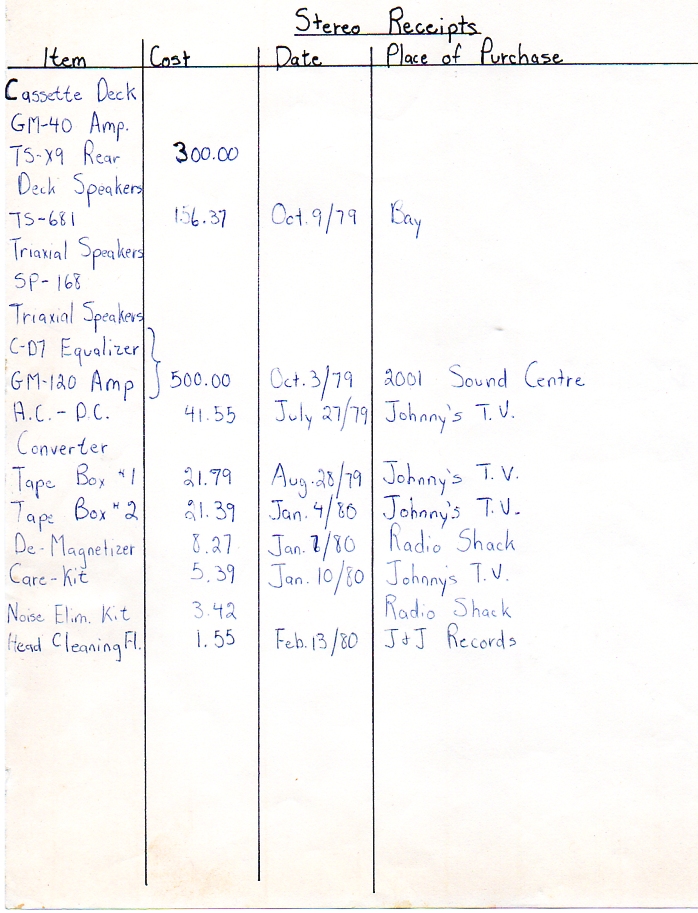 Stereo Receipts
Item Cost Date Place of Purchase
Cassette Deck
GM-40 Amp.
TS-X9 Rear 300.00
Deck Speakers
TS-681 156.37 Oct. 9/79 Bay
Triaxial Speakers
SP-168
Triaxial Speakers
C-D7 Equalizer
GM-120 Amp 500.00 Oct. 3/79 2001 Sound Centre
A.C. - D.C. 41.55 July 27/79 Johnny's T.V.
Converter
Tape Box #1 21.79 Aug. 28/79 Johnny's T.V.
Tape Box #2 21.39 Jan. 4/80 Johnny's T.V.
De-Magnetizer 8.27 Jan. /80 Radio Shack
Care-Kit 5.39 Jan. 10/80 Johnny's T.V.
Noise Elim. Kit 3.42 Radio Shack
Head Cleaning Fl. 1.55 Feb. 13/80 J+J Records